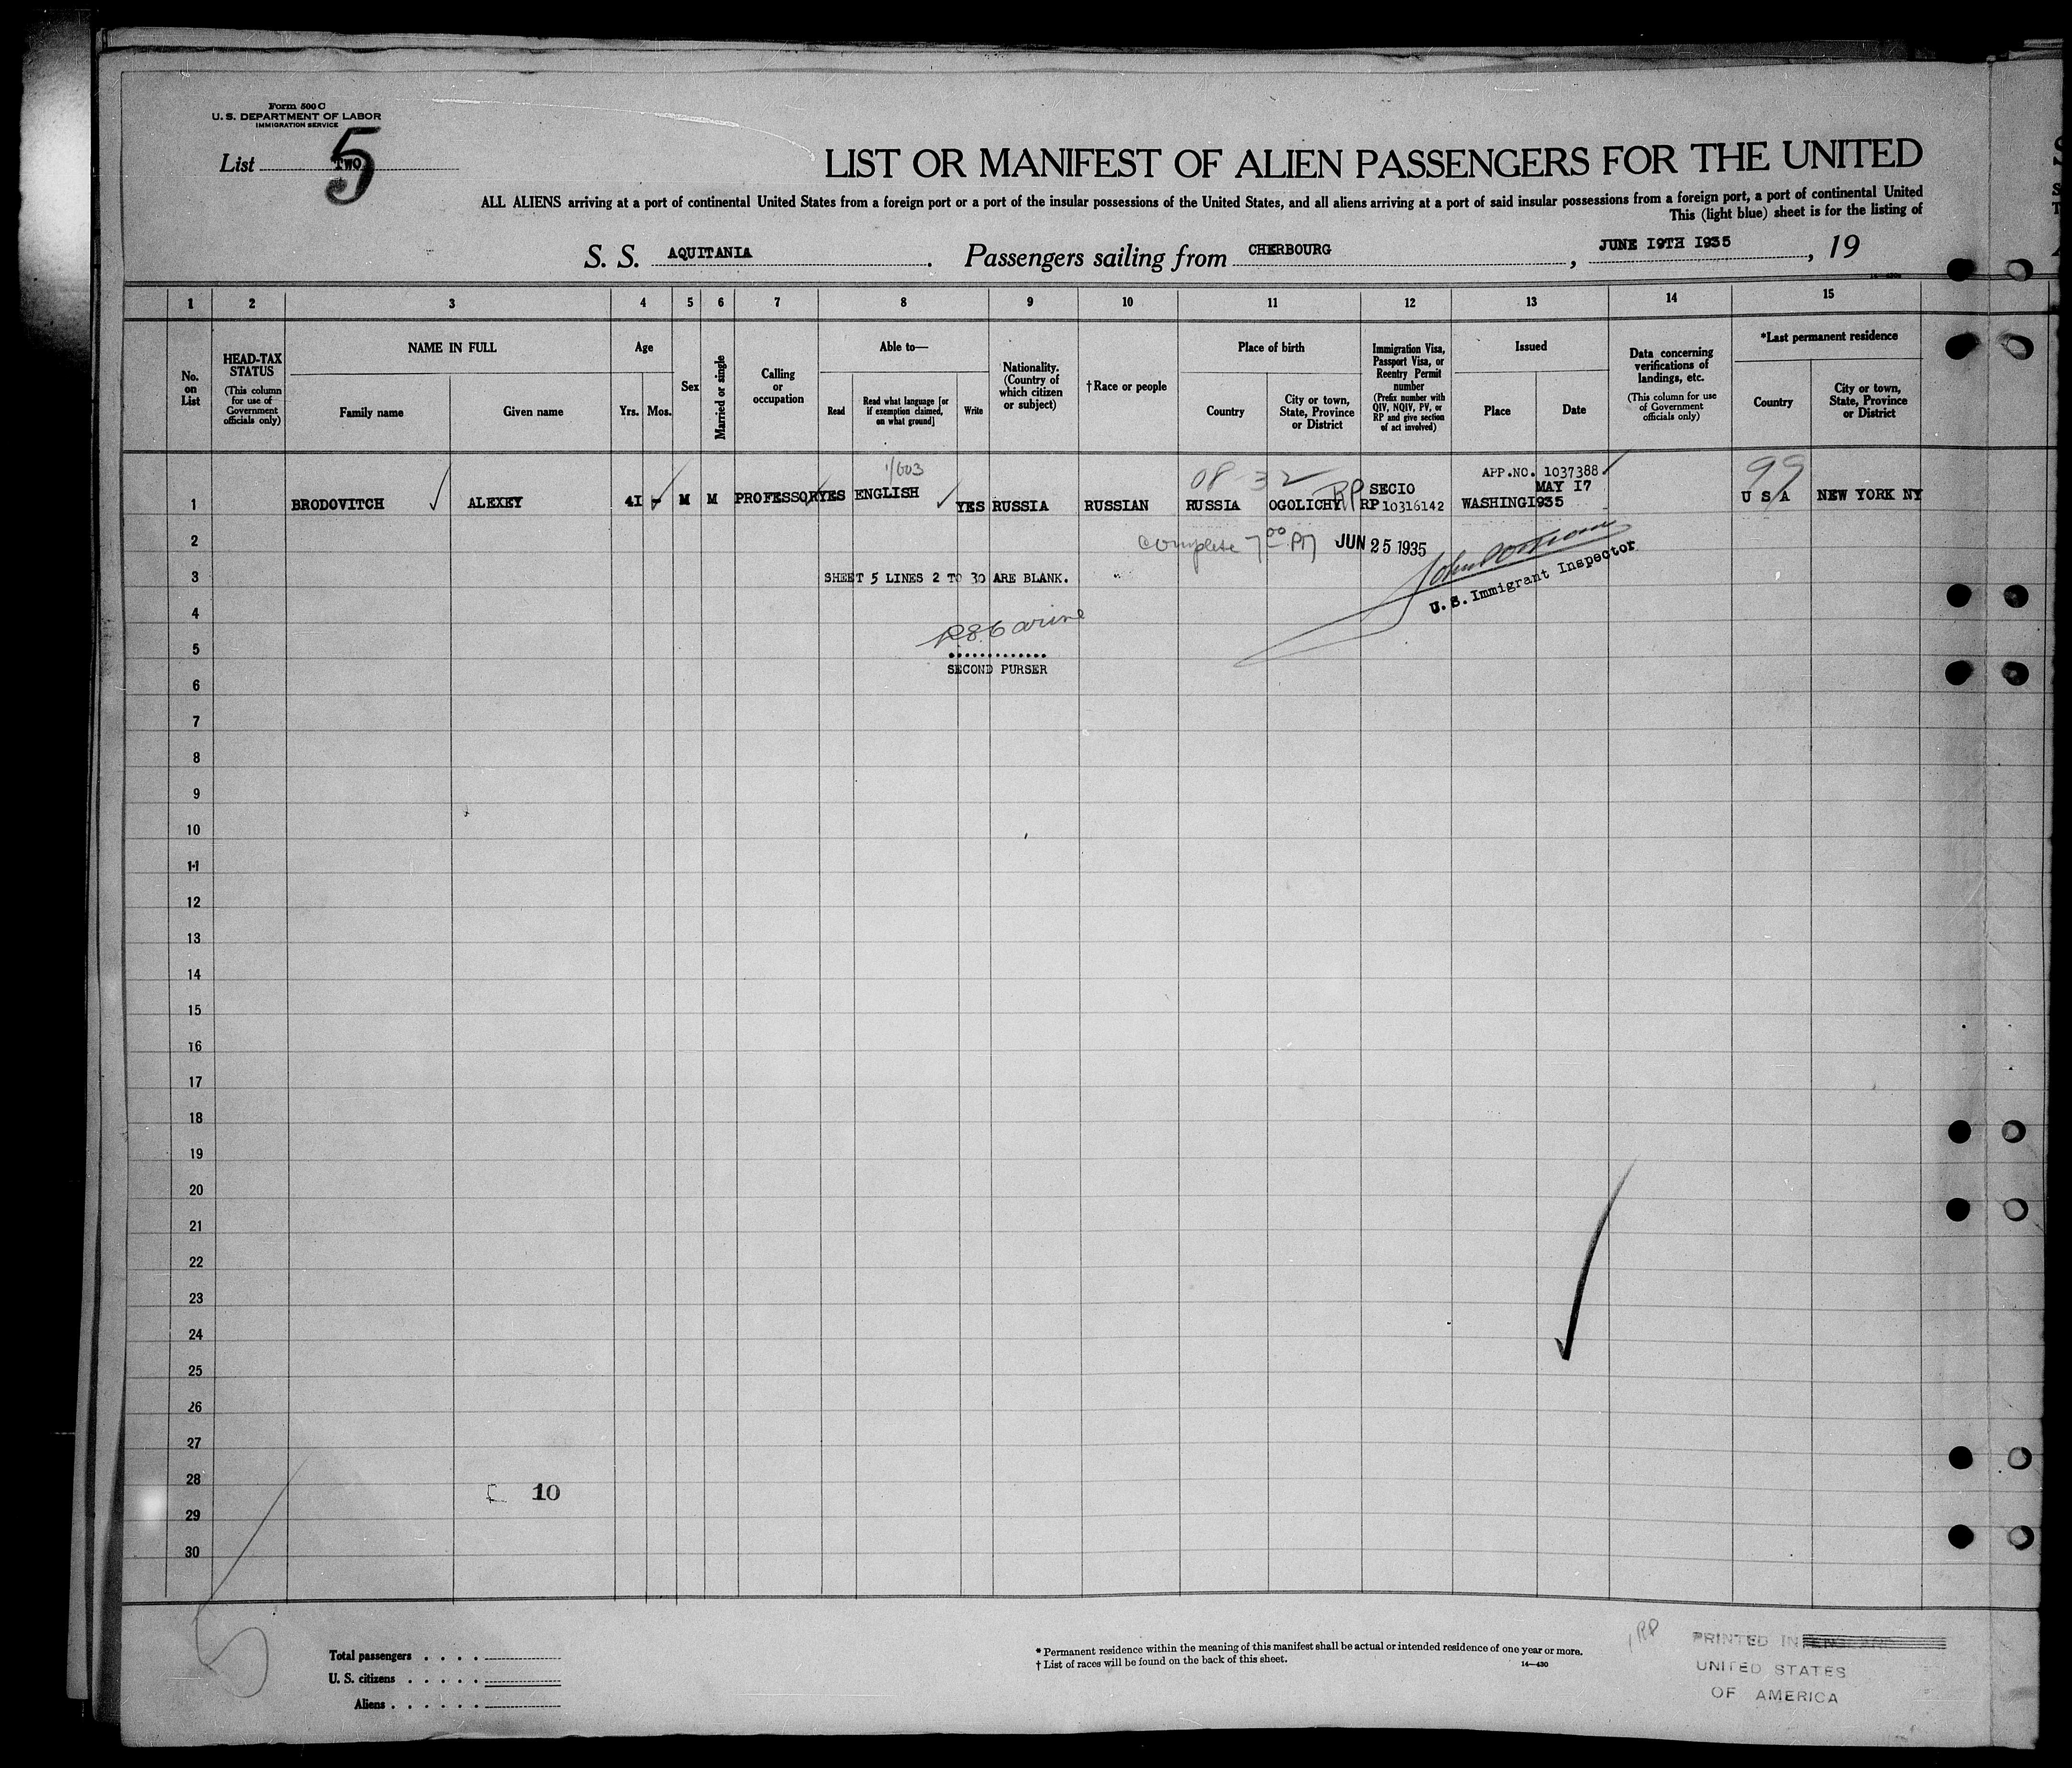 Form 500 C
U. S. DEPARTMENT OF LABOR
IMMIGRATION SERVICE
List TWO
5
LIST OR MANIFEST OF ALIEN PASSENGERS FOR THE UNITED
ALL ALIENS arriving at a port of continental United States from a foreign port or a port of the insular possessions of the United States, and all aliens arriving at a port of said insular possessions from a foreign port, a port of continental United
This (light blue) sheet is for the listing of
S. S. AQUITANIA. Passengers sailing from CHERBOURG, JUNE I9TH I935, 19
1 2 3 4 5 6 7 8 9 10 11 12 13 14 15
No. on List
HEAD-TAX STATUS
(This column for use of Government officials only)
NAME IN FULL
Family name
Given name
Age
Yrs.
Mos.
Sex
Married or single
Calling or occupation
Able to—
Read
Read what language [or if exemption claimed, on what ground]
Write
Nationality. (Country of which citizen or subject)
†Race or people
Place of birth
Country
City or town, State, Province or District
Immigration Visa, Passport Visa, or Reentry Permit number
(Prefix number with QIV, NQIV, PV, or RP and give section of act involved)
Issued
Place
Date
Data concerning verifications of landings, etc.
(This column for use of Government officials only)
*Last permanent residence
Country
City or town, State, Province or District
08 32 99
APP.NO. 1037388
SECIO MAY I7
1 BRODOVITCH ALEXEY 4I M M PROFESSOR YES ENGLISH YES RUSSIA RUSSIAN RUSSIA OGOLICHY RP RP 10316142 WASHING I935 U S A NEW YORK NY
2 Complete 7 00 PM JUN 25 1935
3 SHEET 5 LINES 2 TO 30 ARE BLANK.
U. S. Immigrant Inspector
4
5
SECOND PURSER
6
7
8
9
10
11
12
13
14
15
16
17
18
19
20
21
22
23
24
25
26
27
28
10
29
30
5
Total passengers
U. S. citizens
Aliens
* Permanent residence within the meaning of this manifest shall be actual or intended residence of one year or more.
† List of races will be found on the back of this sheet.
14—430
1 RP
PRINTED IN
UNITED STATES
OF AMERICA